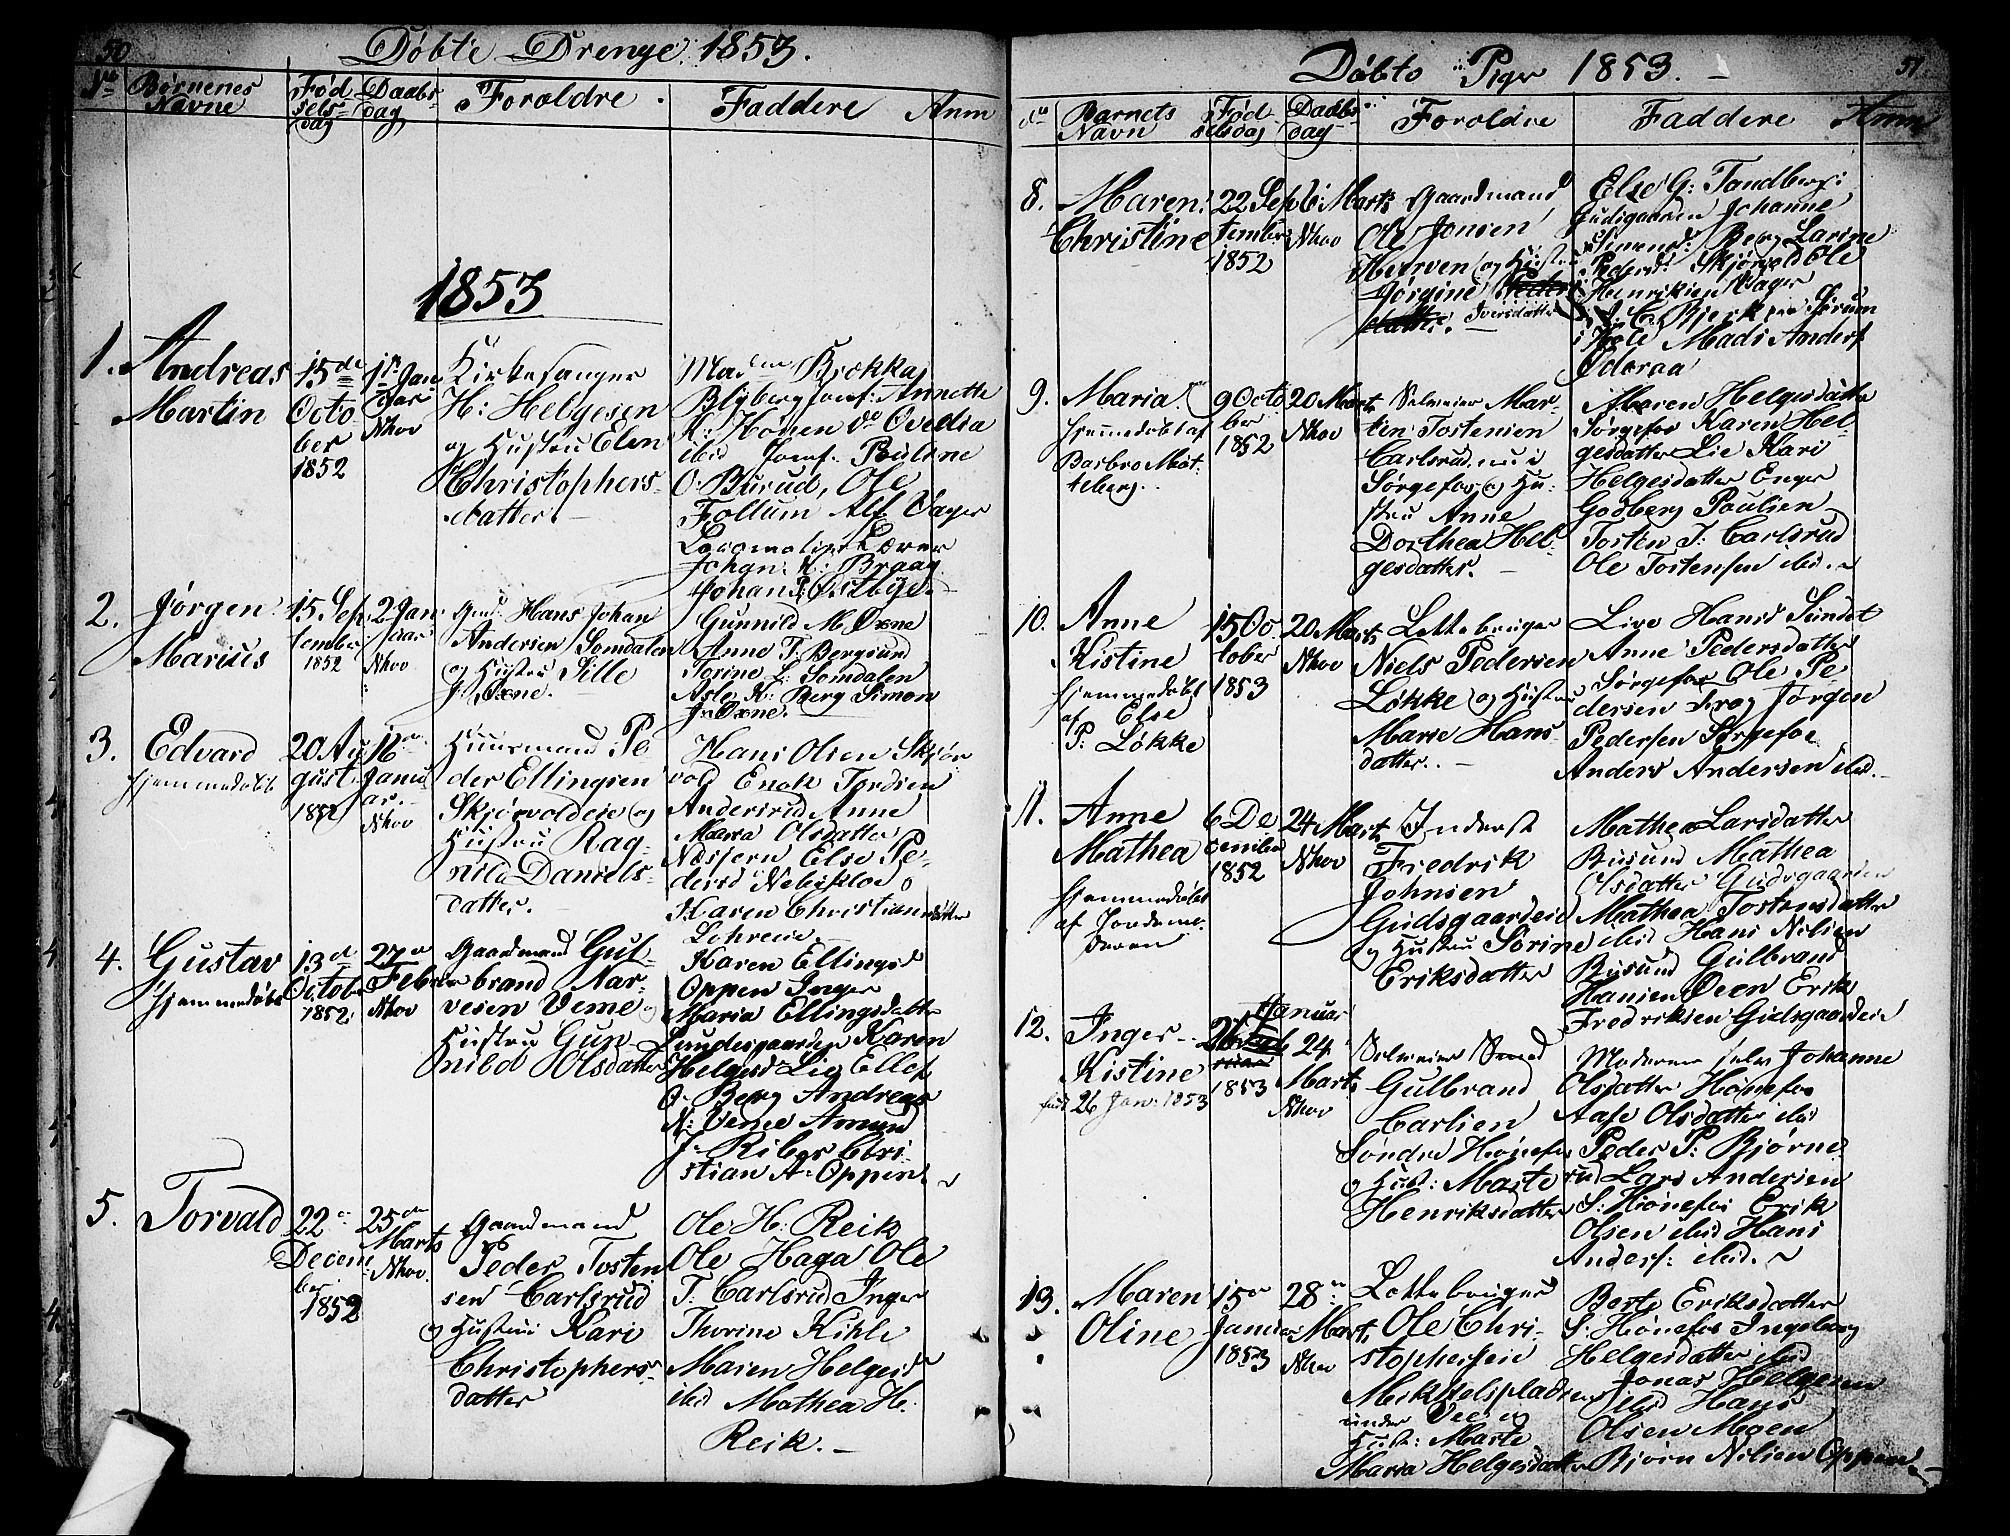 50
Døbte Drenge 1853.
No
Børnenes
Navne
Fød
sels-
dag
Daabs-
dag
Foroldre
Faddere
Anm
1853
1.
Andreas
Martin
15de
Octo
ber
1852
1ste Jan
uari
Nhov
Kirkesanger
H: Helgesen
og Hustru Elen
Christophers-
datter.
Madm Brokka
Blyberg Jomf: Annette
K: Hönen do Ovedia
ibid Jomf. Pauline
O: Burud, Ole
Follum Alf Vager
Lærer
Johan: K: Braag
Johan P: Østbye
2.
Jørgen
Marius
15 Sep
tember
1852
2 Jan
uar
Nhov
Gmd. Hans Johan
Andersen Somdalen
og Hustru Sille
J. Oxne.
Gunnild M. Oxne
Anne T. Bergsund
Torine L. Somdalen
Asle K: Berg Simon
J. Oxne.
3.
Edvard
hjemmedöbt
20 Au
gust
1852
16de
Janu
ar.
Nhov
Huusmand Pe
der Ellingsen
Skjørvoldeie og
Hustru Rag-
nild Daniels-
datter.
Hans Olsen Skjør
vold Enok Tordsen
Andersrud Anne
Maria Olsdatter
Næsjern Else Pe-
dersd
Karen Christiansdatter
Lohreeie
4.
Gustav
hjemmedöbt
13de
October
1852
27de
Februar
Nhov
Gaardmand Gul-
brand Nar-
vesen Veme og
Hustru Gun-
nild Olsdatter
Karen Ellingsd
Oppen Inger
Maria Ellingsdatter
Lundesgaarden Karen
Helgesd Lie Ellef
O: Berg Andreas
N: Veme Amund
J. Riber Chri-
stian A. Oppen
5.
Torvald
22de
Decem-
ber
1852
25de
Marts
Nhov.
Gaardmand
Peder Tosten
sen Carlsrud
og Hustru Kari
Christophers-
datter
Ole H: Reik
Ole Haga Ole
T. Carlsrud Inger
Thorine Kihle
Maren Helgesd
ibid Mathea H.
Reik.
Døbte Piger 1853.
51
No
Barnets
Navn
Fød
selsdag
Daabs-
dag
Foroldre
Faddere
Anm
8.
Maren
Christine
22 Sep
tember
1852
6 Marts
Nhov
Gaardmand
Ole Jonsen
Hverven og Hustru
Jørgine Peders
datter. Iversdatter
Else G: Tandberg:
Gudsgaarden Johanne
Simensd: Berg Larine
Pedersd: Skjørvold Ole
Henriksen Vager
Bjerk
i Hole Mads Anders
9.
Maria
hjemmedöbt af
Barbro Mot
teberg.
9 Octo
ber
1852
20 Marts
Nhov
Selveier Mar-
ten Tostensen
Carlsrud nu i
Sørgefos og Hu-
stru Anne
Dorthea Hel-
gesdatter.
Maren Helgesdatter
Sørgefos Karen Hel-
gesdatter Lie Kari
Helgesdatter Enger
Godberg Poulsen
Tosten T. Carlsrud
Ole Tostensen ibid.
10.
Anne
Kistine
hjemmedöbt
af Else
P. Løkke
15 Oc
tober
1853
20 Marts
Nhov
Lottebruger
Niels Pedersen
Løkke og Hustru
Marie Hans-
datter.
Live Hansd Sundet
Anne Pedersdatter
Sørgefos Ole Pe-
dersen Krog Jørgen
Pedersen Sørgefos
Anders Andersen ibid.
11.
Anne
Mathea
hjemmedöbt
af Jordemo-
deren
6 De
cember
1852
24 Marts
Nhov
Inderst
Fredrik
Johnsen
Gudsgaardseie
og Hustru Sorine
Eriksdatter
Mathea Larsdatter
Busund Mathea
Olsdatter Gudsgaarden
Mathea Tostensdatter
ibid Hans Nilsen
Busund Gulbrand
Hansen Oeen Erik
Fredriksen Gudsgaardeie
12.
Inger
Kistine
født 26 Jan: 1853
Januar
26
1853
24
Marts
Nhov
Selveier Smed
Gulbrand
Carlsen
Søndre Hønefos
og Hust: Marte
Henriksdatter
Moderen selv Johanne
Olsdatter Hønefos
Aase Olsdatter ibid
Peder P: Bjørne-
rud Lars Andersen
S: Hønefos Erik
Olsen ibid Hans
Anders: ibid.
13.
Maren
Oline
15de
Januar
1853
28de
Marts
Nhov
Lottebruger
Ole Chri-
stophersen
Mikkelspladsen
under Vee og
Hust: Marte
Maria Helgesdatter
Berte Eriksdatter
S: Hønefos Ingeborg
Helgesdatter ibid
Jonas Helgesen
ibid Hans
Olsen Moen
Bjørn Nilsen Oppen